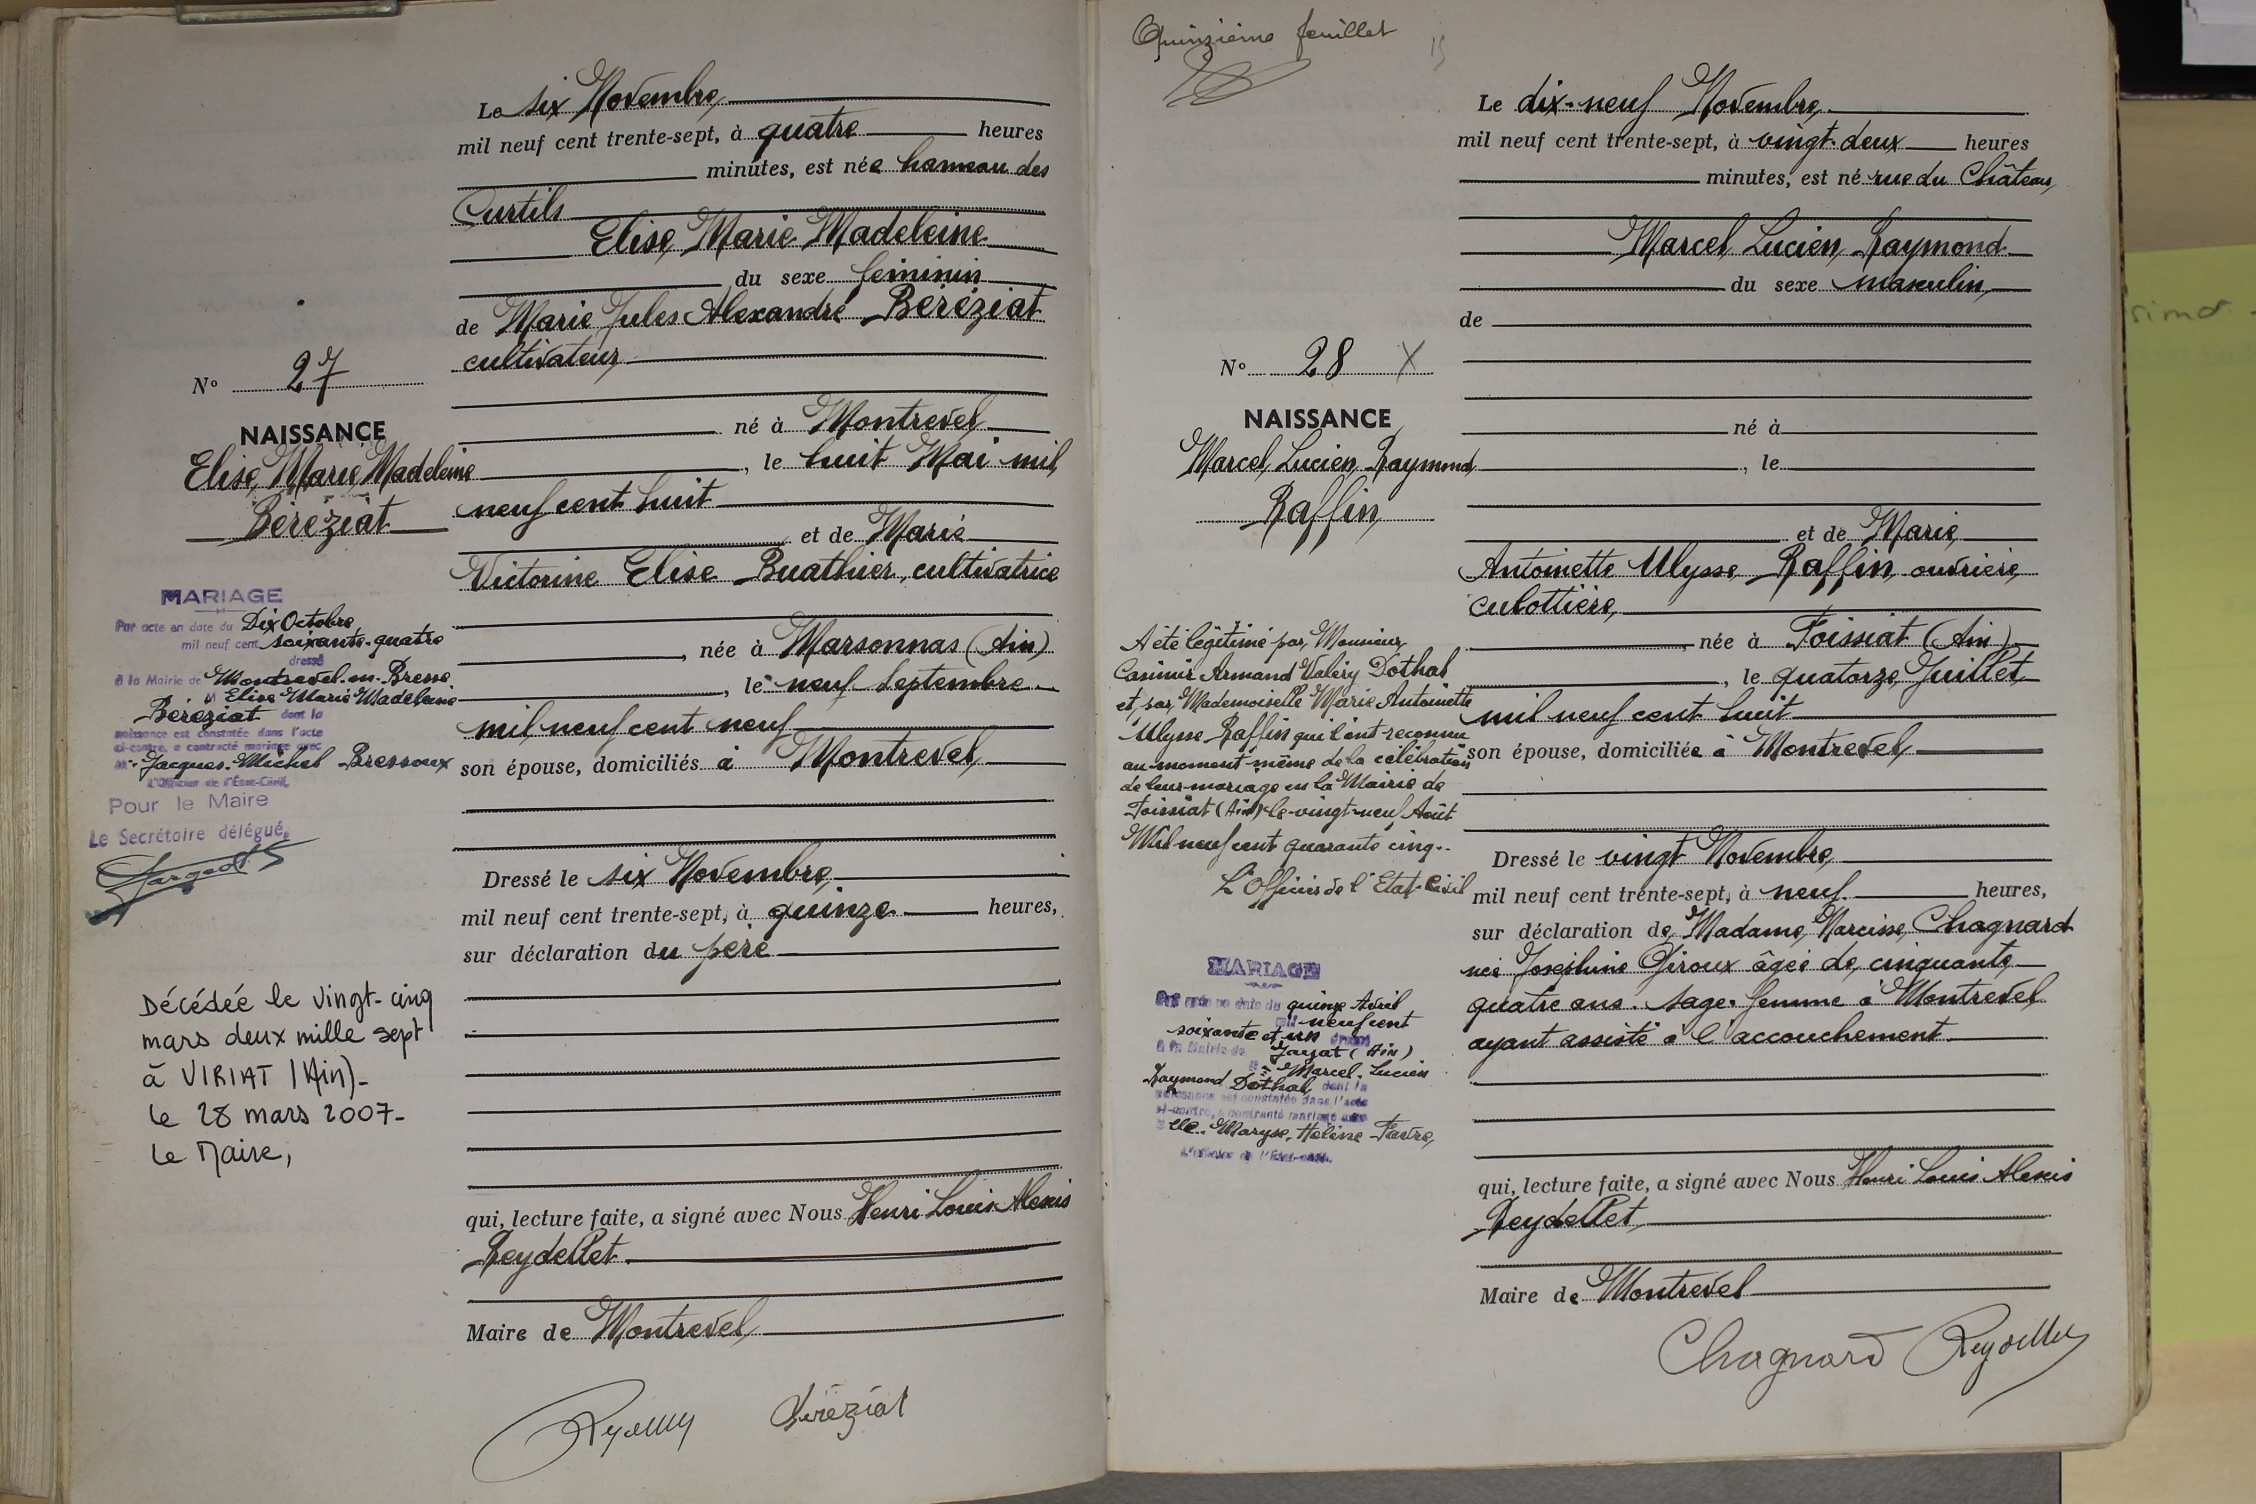 Le six Novembre
mil neuf cent trente-sept, à quatre heures
minutes, est née hameau des
Curtils
Elise, Marie Madeleine
du sexe féminin
de Marie Jules Alexandre Béréziat
cultivateur,
né à Montrevel
, le huit Mai mil
neuf cent huit
et de Marie
Victorine Elise Buathier, cultivatrice
, née à Marsonnas (Ain)
, le neuf Septembre
mil neuf cent neuf
son épouse, domiciliés à Montrevel
Dressé le six Novembre
mil neuf cent trente-sept, à quinze heures,
sur déclaration du père
qui, lecture faite, a signé avec Nous Henri Louis Alexis
Reydellet
Maire de Montrevel
Béréziat
N° 27
NAISSANCE
Elise, Marie, Madeleine
Béréziat
MARIAGE
Par acte en date du Dix Octobre
mil neuf cent soixante-quatre
dressé
à la Mairie de Montrevel-en-Bresse
M Elise Marie Madeleine
Béréziat dont la
naissance est constatée dans l'acte
ci-contre, a contracté mariage avec
M. Jacques Michel Bressoux
L'Officier de l'État-Civil,
Pour le Maire
Le Secrétaire délégué,
Décédée le vingt-cinq
mars deux mille sept
à VIRIAT (Ain)-
le 28 mars 2007-
Le Maire,
Quinzième feuillet
15
Le dix-neuf Novembre,
mil neuf cent trente-sept, à vingt-deux heures
minutes, est né rue du Château,
Marcel, Lucien, Raymond
du sexe masculin,
de
né à
, le
et de Marie,
Antoinette Ulysse Raffin, ouvrière
culottière,
, née à Foissiat (Ain)
, le quatorze Juillet
mil neuf cent huit
son épouse, domiciliée à Montrevel
Dressé le vingt Novembre,
mil neuf cent trente-sept, à neuf heures,
sur déclaration de Madame Narcisse, Chagnard
née Joséphine Giroux âgée de cinquante
quatre ans. sage-femme à Montrevel
ayant assisté à l'accouchement
qui, lecture faite, a signé avec Nous Henri Louis Alexis
Reydellet
Maire de Montrevel
Chagnard Reydellet
N° 28 X
NAISSANCE
Marcel, Lucien, Raymond
Raffin
A été légitimé par, Monsieur,
Casimir Armand Valéry Dothal
et, par, Mademoiselle Marie Antoinette
Ulysse Raffin qui l'ont reconnu
au moment même de la célébration
de leur mariage en la Mairie de
Foissiat (Ain) le vingt-neuf Août
Mil neuf cent quarante cinq.
L'Officier de l'Etat-Civil
MARIAGE
Par acte en date du quinze Avril
mil neuf cent
soixante et un dressé
à la Mairie de Jayat (Ain)
M Marcel, Lucien
Raymond Dothal, dont la
naissance est constatée dans l'acte
ci-contre, a contracté mariage avec
Mlle Maryse, Hélène Favre,
L'Officier de l'État-Civil,